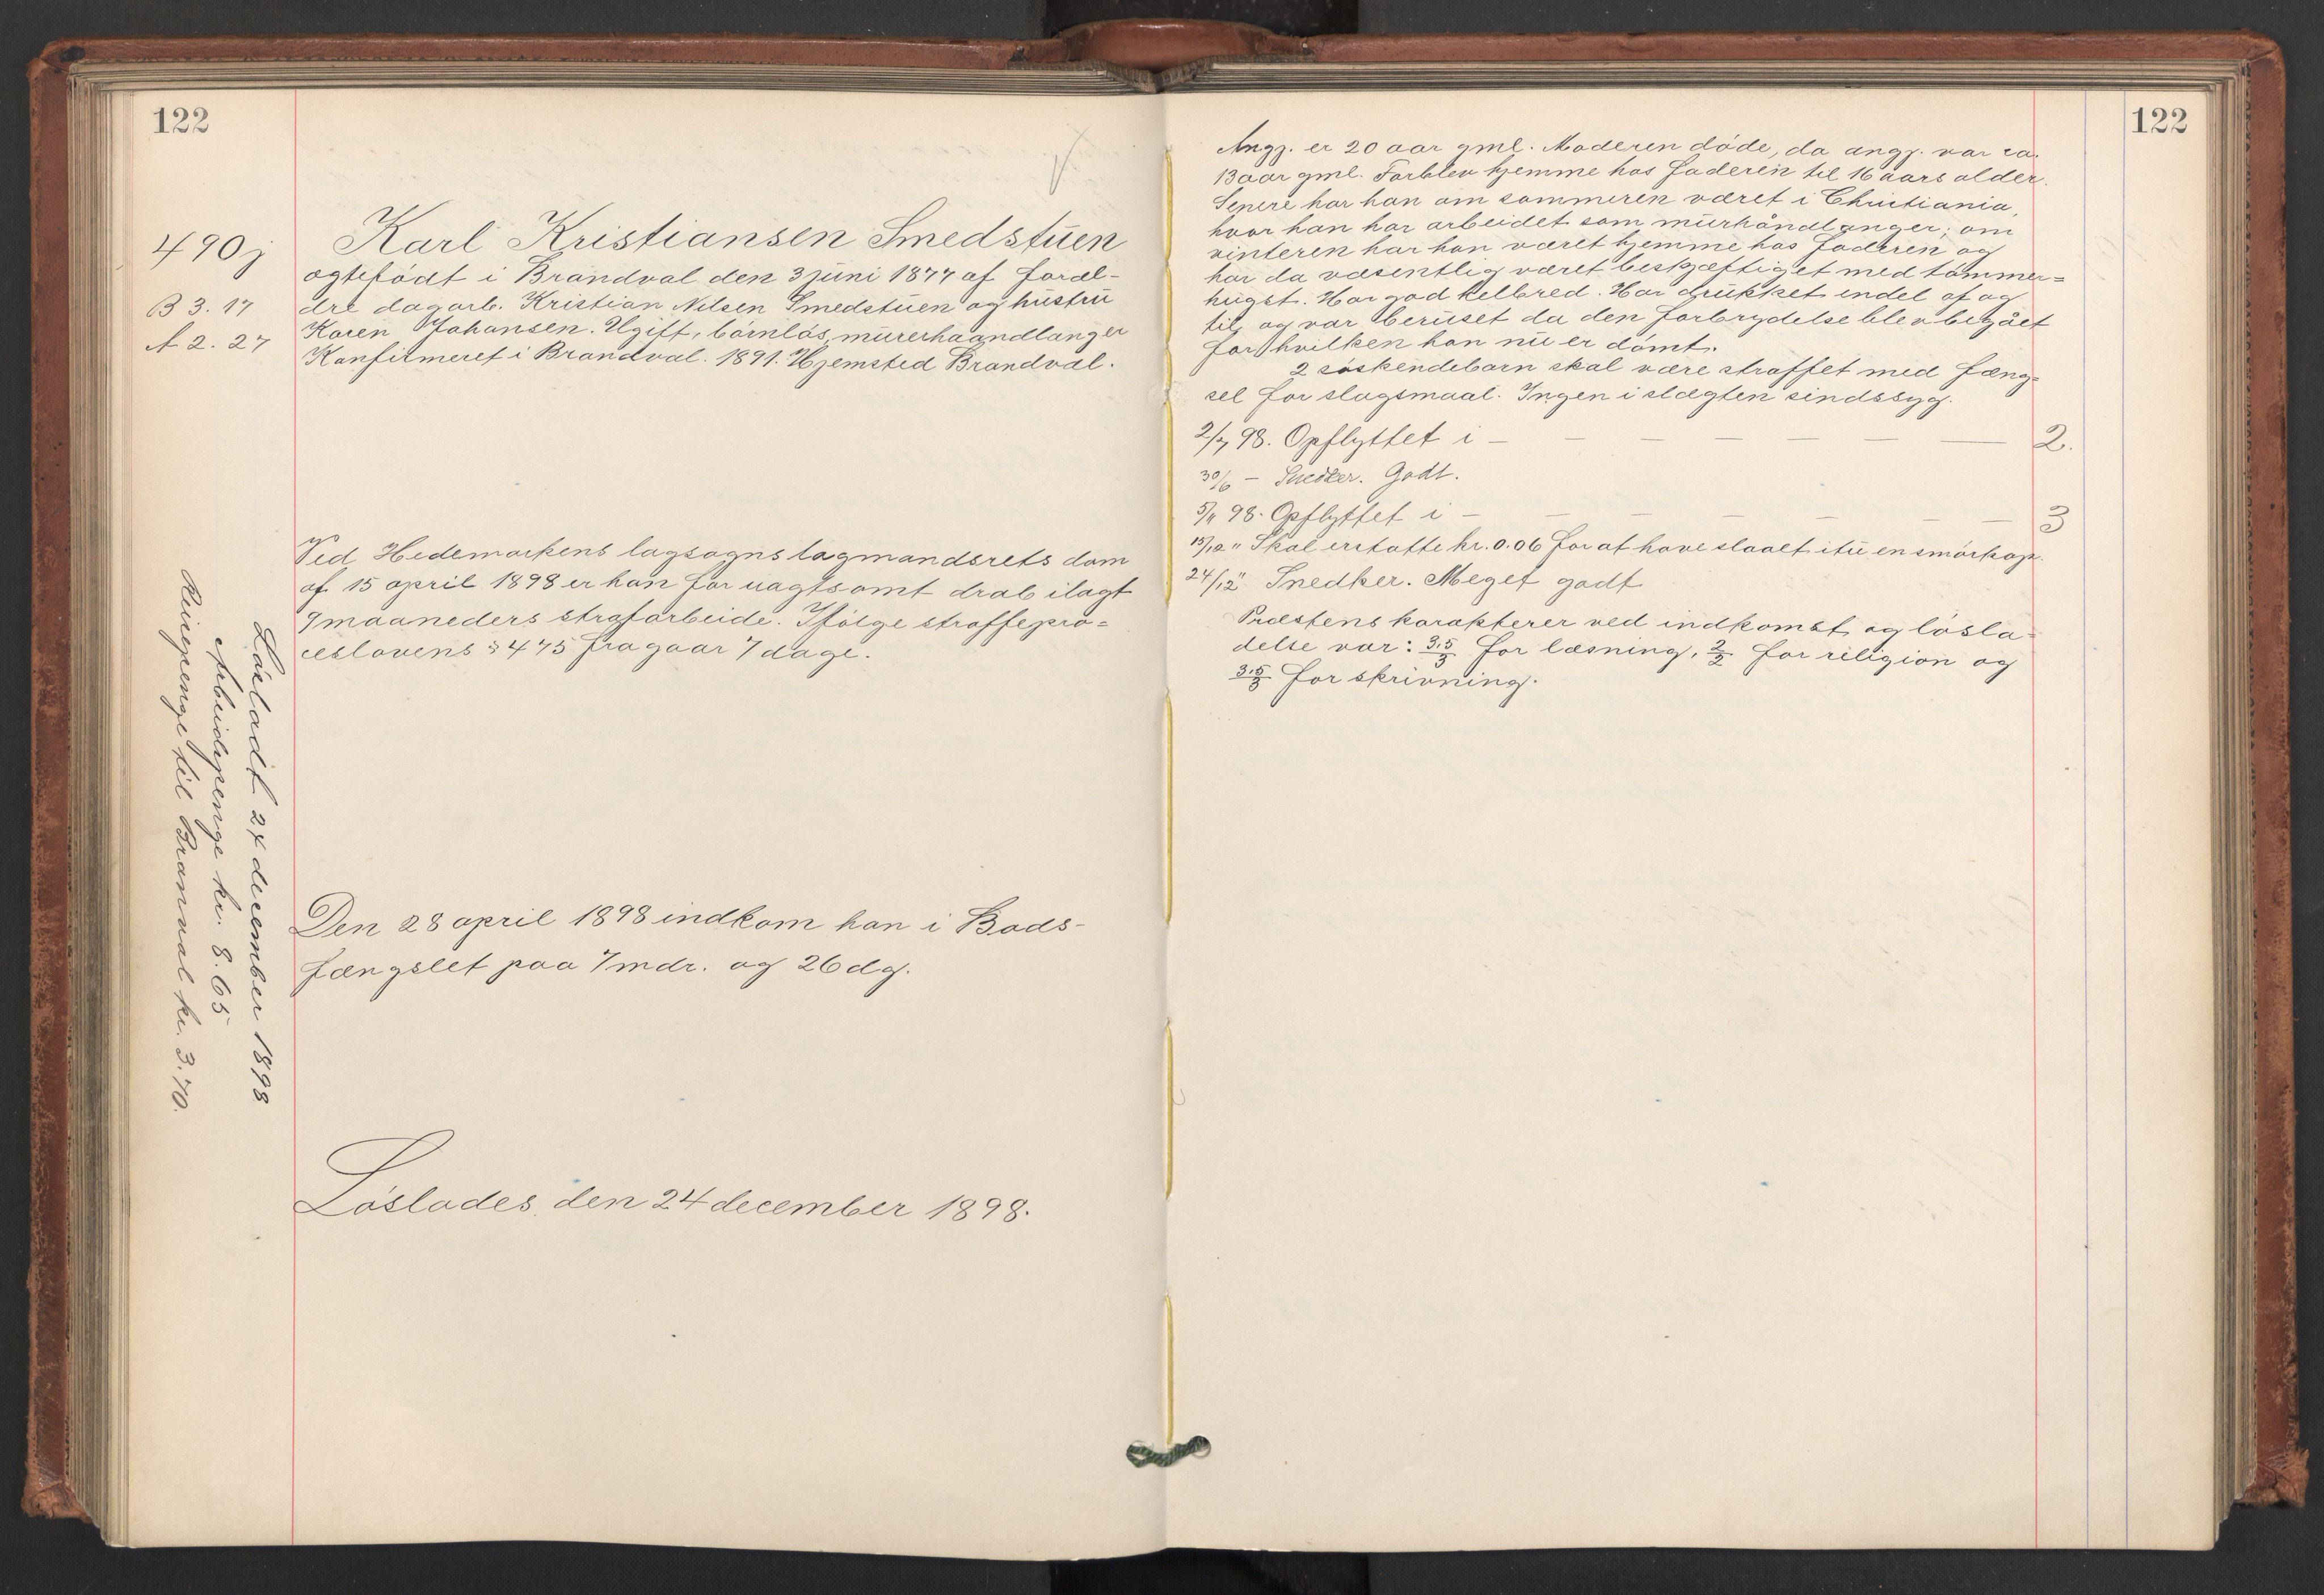 122
490j
B 3. 17
A 2. 27
Karl Kristiansen Smedstuen
ægtefødt i Brandval den 3 juni 1877 af foræl-
dre dagarb. Kristian Nilsen Smedstuen og hustru
Karen Johansen. Ugift, børnløs, murerhaandlanger
Konfirmeret i Brandval. 1891. Hjemsted Brandval.
Ved Hedemarkens lagsogns lagmandsrets dom
af 15 april 1898 er han for uagtsomt drab ilagt
9 maaneders strafarbeide. Ifølge straffepro=
ceslovens § 475 fragaar 7 dage.
Løsladt 24 december 1898
Arbeidspenge kr. 8.65
Reisepenge til Brandval kr. 3.70.
Den 28 april 1898 indkom han i Bods-
fængslet paa 7 mdr. og 26 dg.
Løslades den 24 december 1898.
122
Angj. er 20 aar gml. Moderen døde, da angj. var ca.
13 aar gml. Forblev hjemme hos faderen til 16 aars alder.
Senere har han om sommeren været i Christiania,
hvor han har arbeidet som murhåndlanger; om
vinteren har han været hjemme hos faderen og
har da væsentlig været beskjæftiget med tømmer=
hugst. Har god helbred. Har drukket endel af og
til, og var beruset da den forbrydelse blev begået
for hvilken han nu er dømt.
2 søskendebarn skal være straffet med fæng=
sel for slagsmaal. Ingen i slægten sindssyg.
2/7 98. Opflyttet i — — — — — — — 2.
30/6 — Snedker. Godt.
5/11 98. Opflyttet i — — — — — — 3
15/12 " Skal erstatte kr. 0.06 for at have slaaet itu en smørkop.
24/12 " Snedker. Meget godt
Præstens karakterer ved indkomst og løsla=
delse var: 3.5/3 for læsning, 2/2 for religion og
3.5/3 for skrivning.